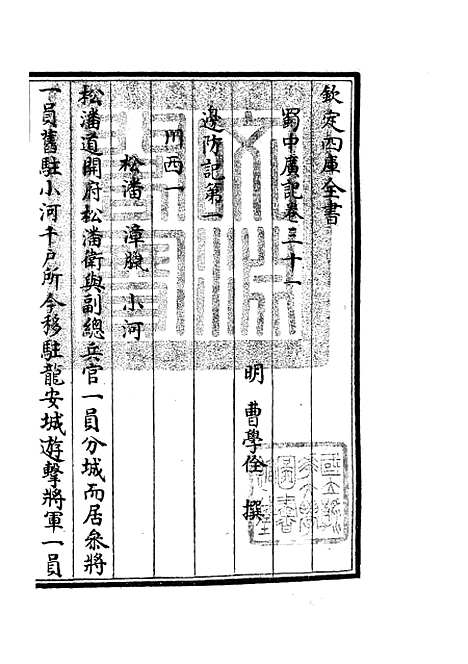 欽定四庫全書
蜀中廣記卷三十一
明 曹學佺 撰
邊防記第一
川西一
松潘 漳臘 小河
松潘道開府松潘衛與副總兵官一員分城而居叅將
一員舊駐小河千戶所今移駐龍安城遊擊將軍一員